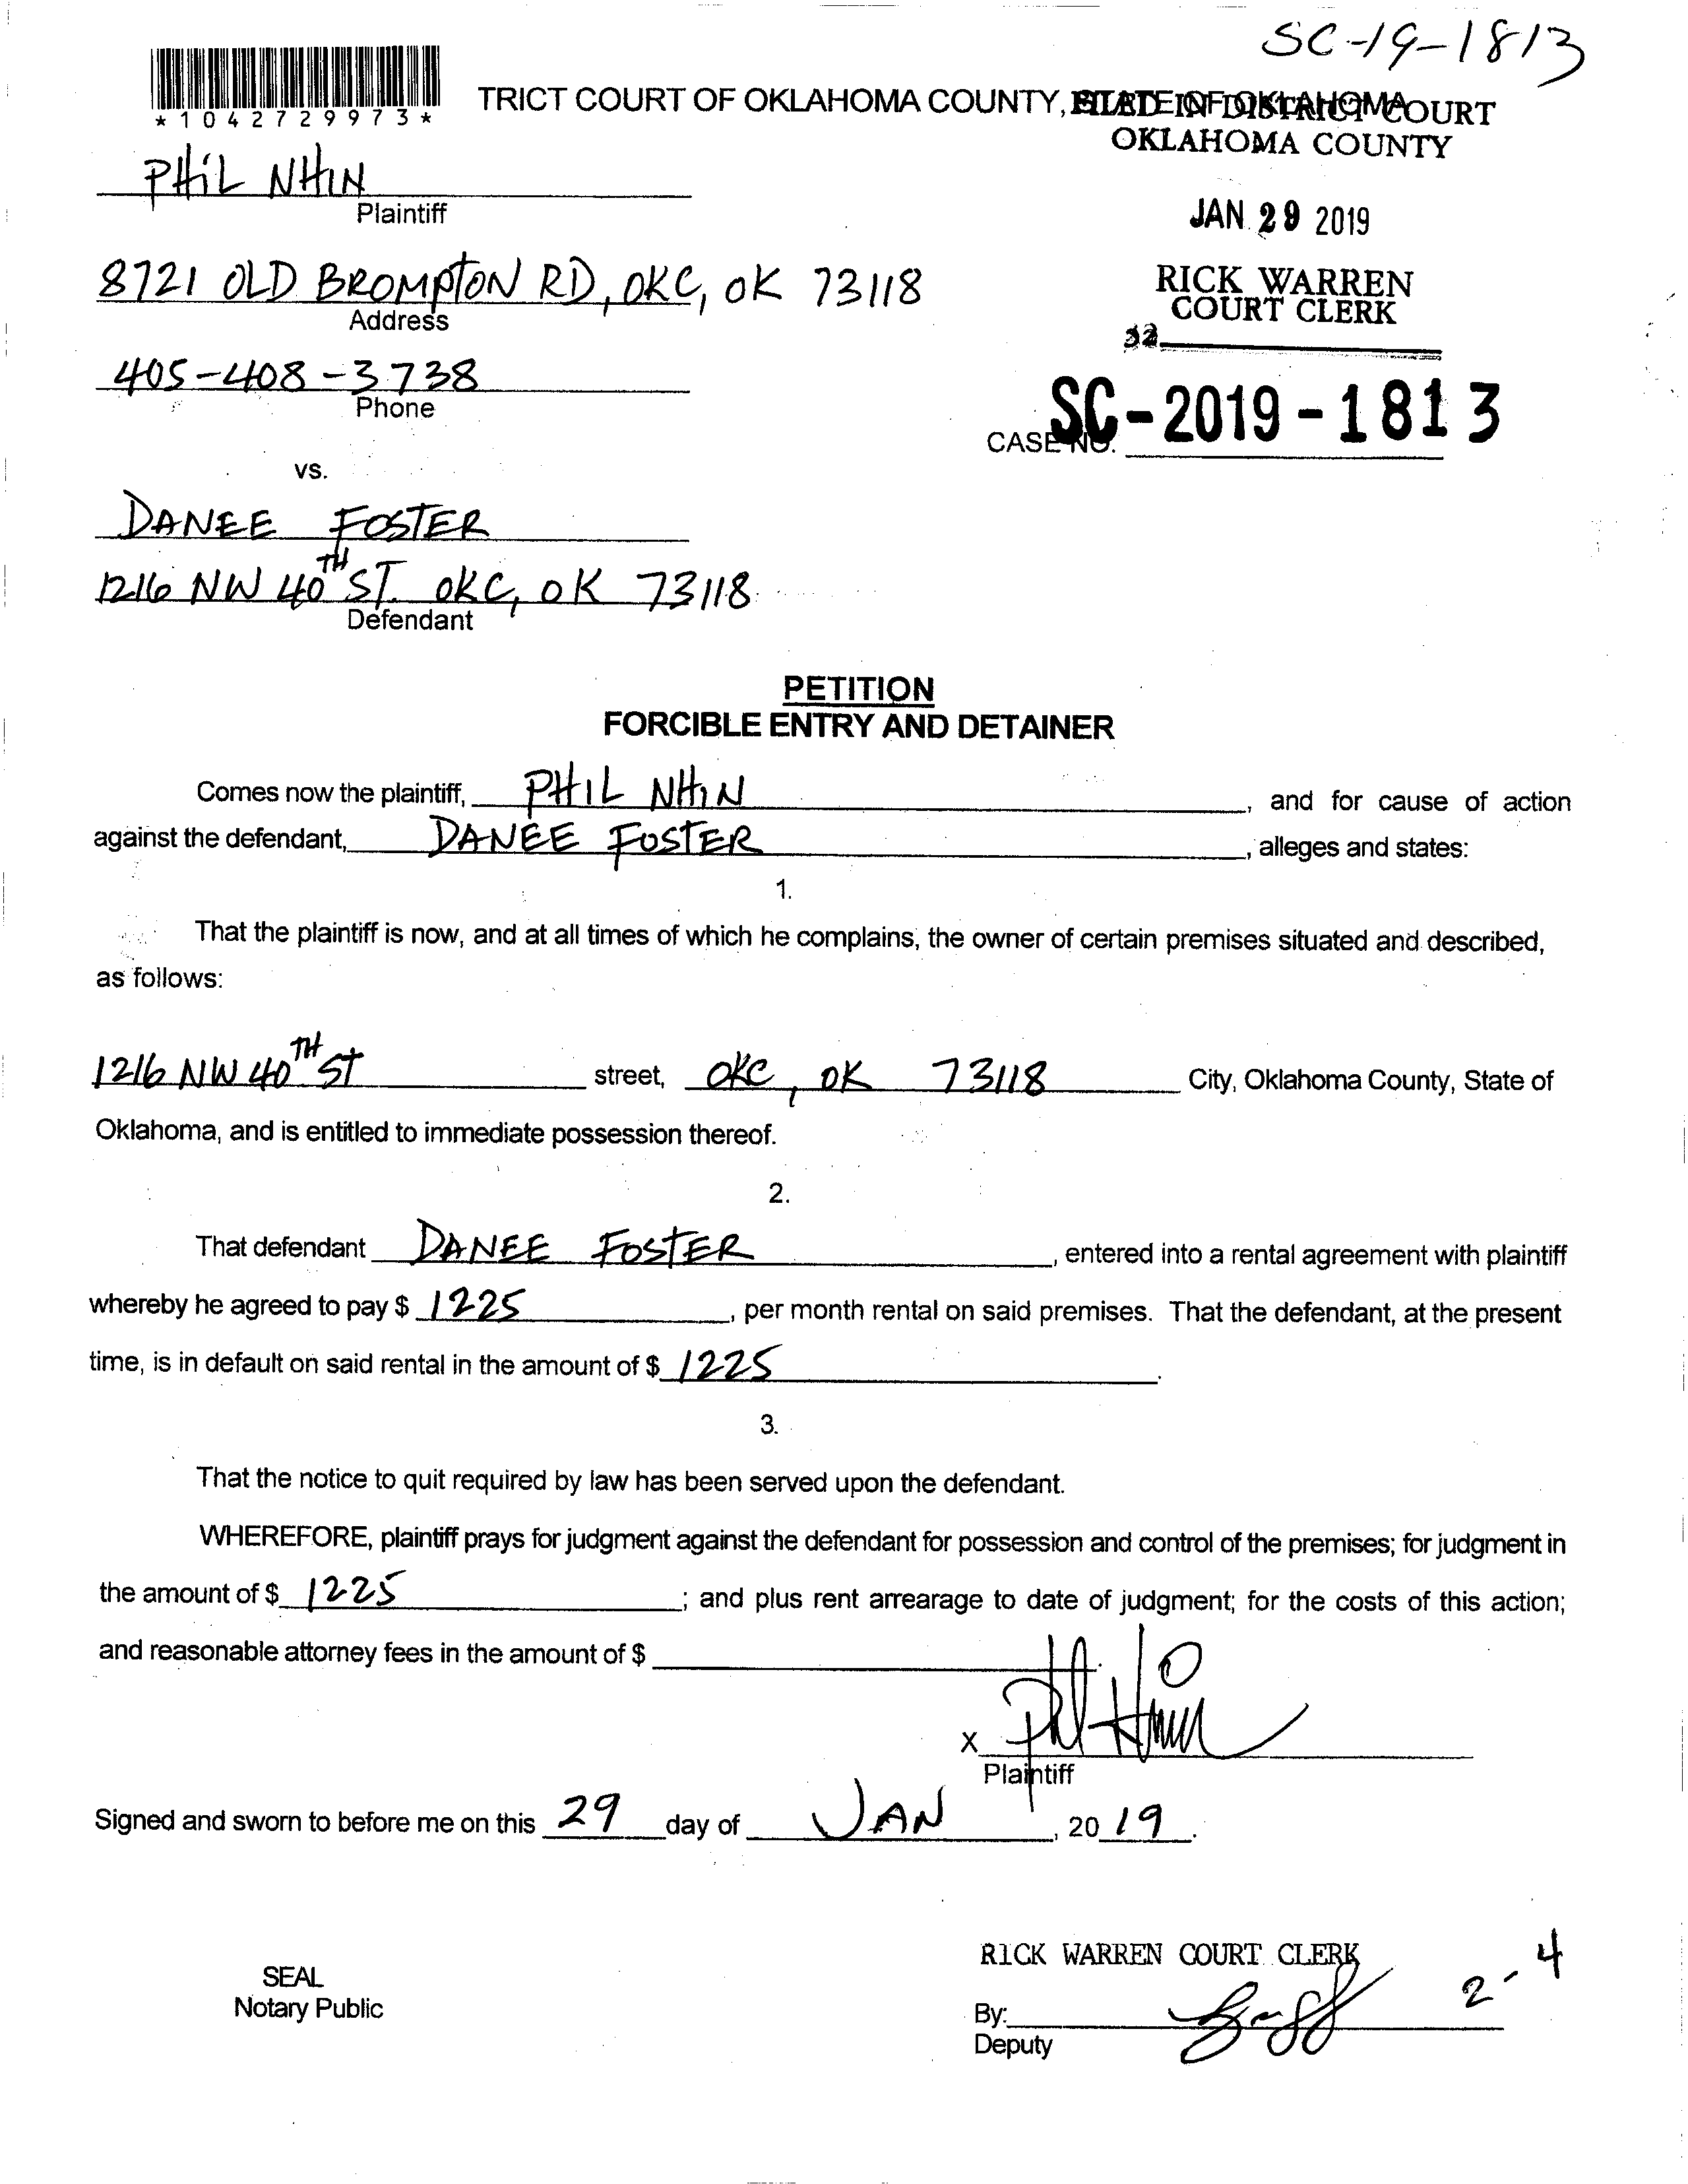 SC-19-1813
*1042729973*
TRICT COURT OF OKLAHOMA COUNTY, STATE OF OKLAHOMA
FILED IN DISTRICT COURT
OKLAHOMA COUNTY
PHIL NHIN
Plaintiff
JAN 29 2019
8721 OLD BROMPTON RD, OKC, OK 73118
Address
RICK WARREN
COURT CLERK
32
405-408-3738
Phone
SC-2019-1813
CASE NO.
vs.
DANEE FOSTER
1216 NW 40TH ST. OKC, OK 73118
Defendant
PETITION
FORCIBLE ENTRY AND DETAINER
Comes now the plaintiff, PHIL NHIN, and for cause of action
against the defendant, DANEE FOSTER, alleges and states:
1.
That the plaintiff is now, and at all times of which he complains, the owner of certain premises situated and described,
as follows:
1216 NW 40TH ST street, OKC, OK 73118 City, Oklahoma County, State of
Oklahoma, and is entitled to immediate possession thereof.
2.
That defendant DANEE FOSTER, entered into a rental agreement with plaintiff
whereby he agreed to pay $ 1225, per month rental on said premises. That the defendant, at the present
time, is in default on said rental in the amount of $ 1225.
3.
That the notice to quit required by law has been served upon the defendant.
WHEREFORE, plaintiff prays for judgment against the defendant for possession and control of the premises; for judgment in
the amount of $ 1225; and plus rent arrearage to date of judgment; for the costs of this action;
and reasonable attorney fees in the amount of $
X Phil Nhin
Plaintiff
Signed and sworn to before me on this 29 day of JAN, 2019.
RICK WARREN COURT CLERK
2-4
SEAL
Notary Public
By:
Deputy